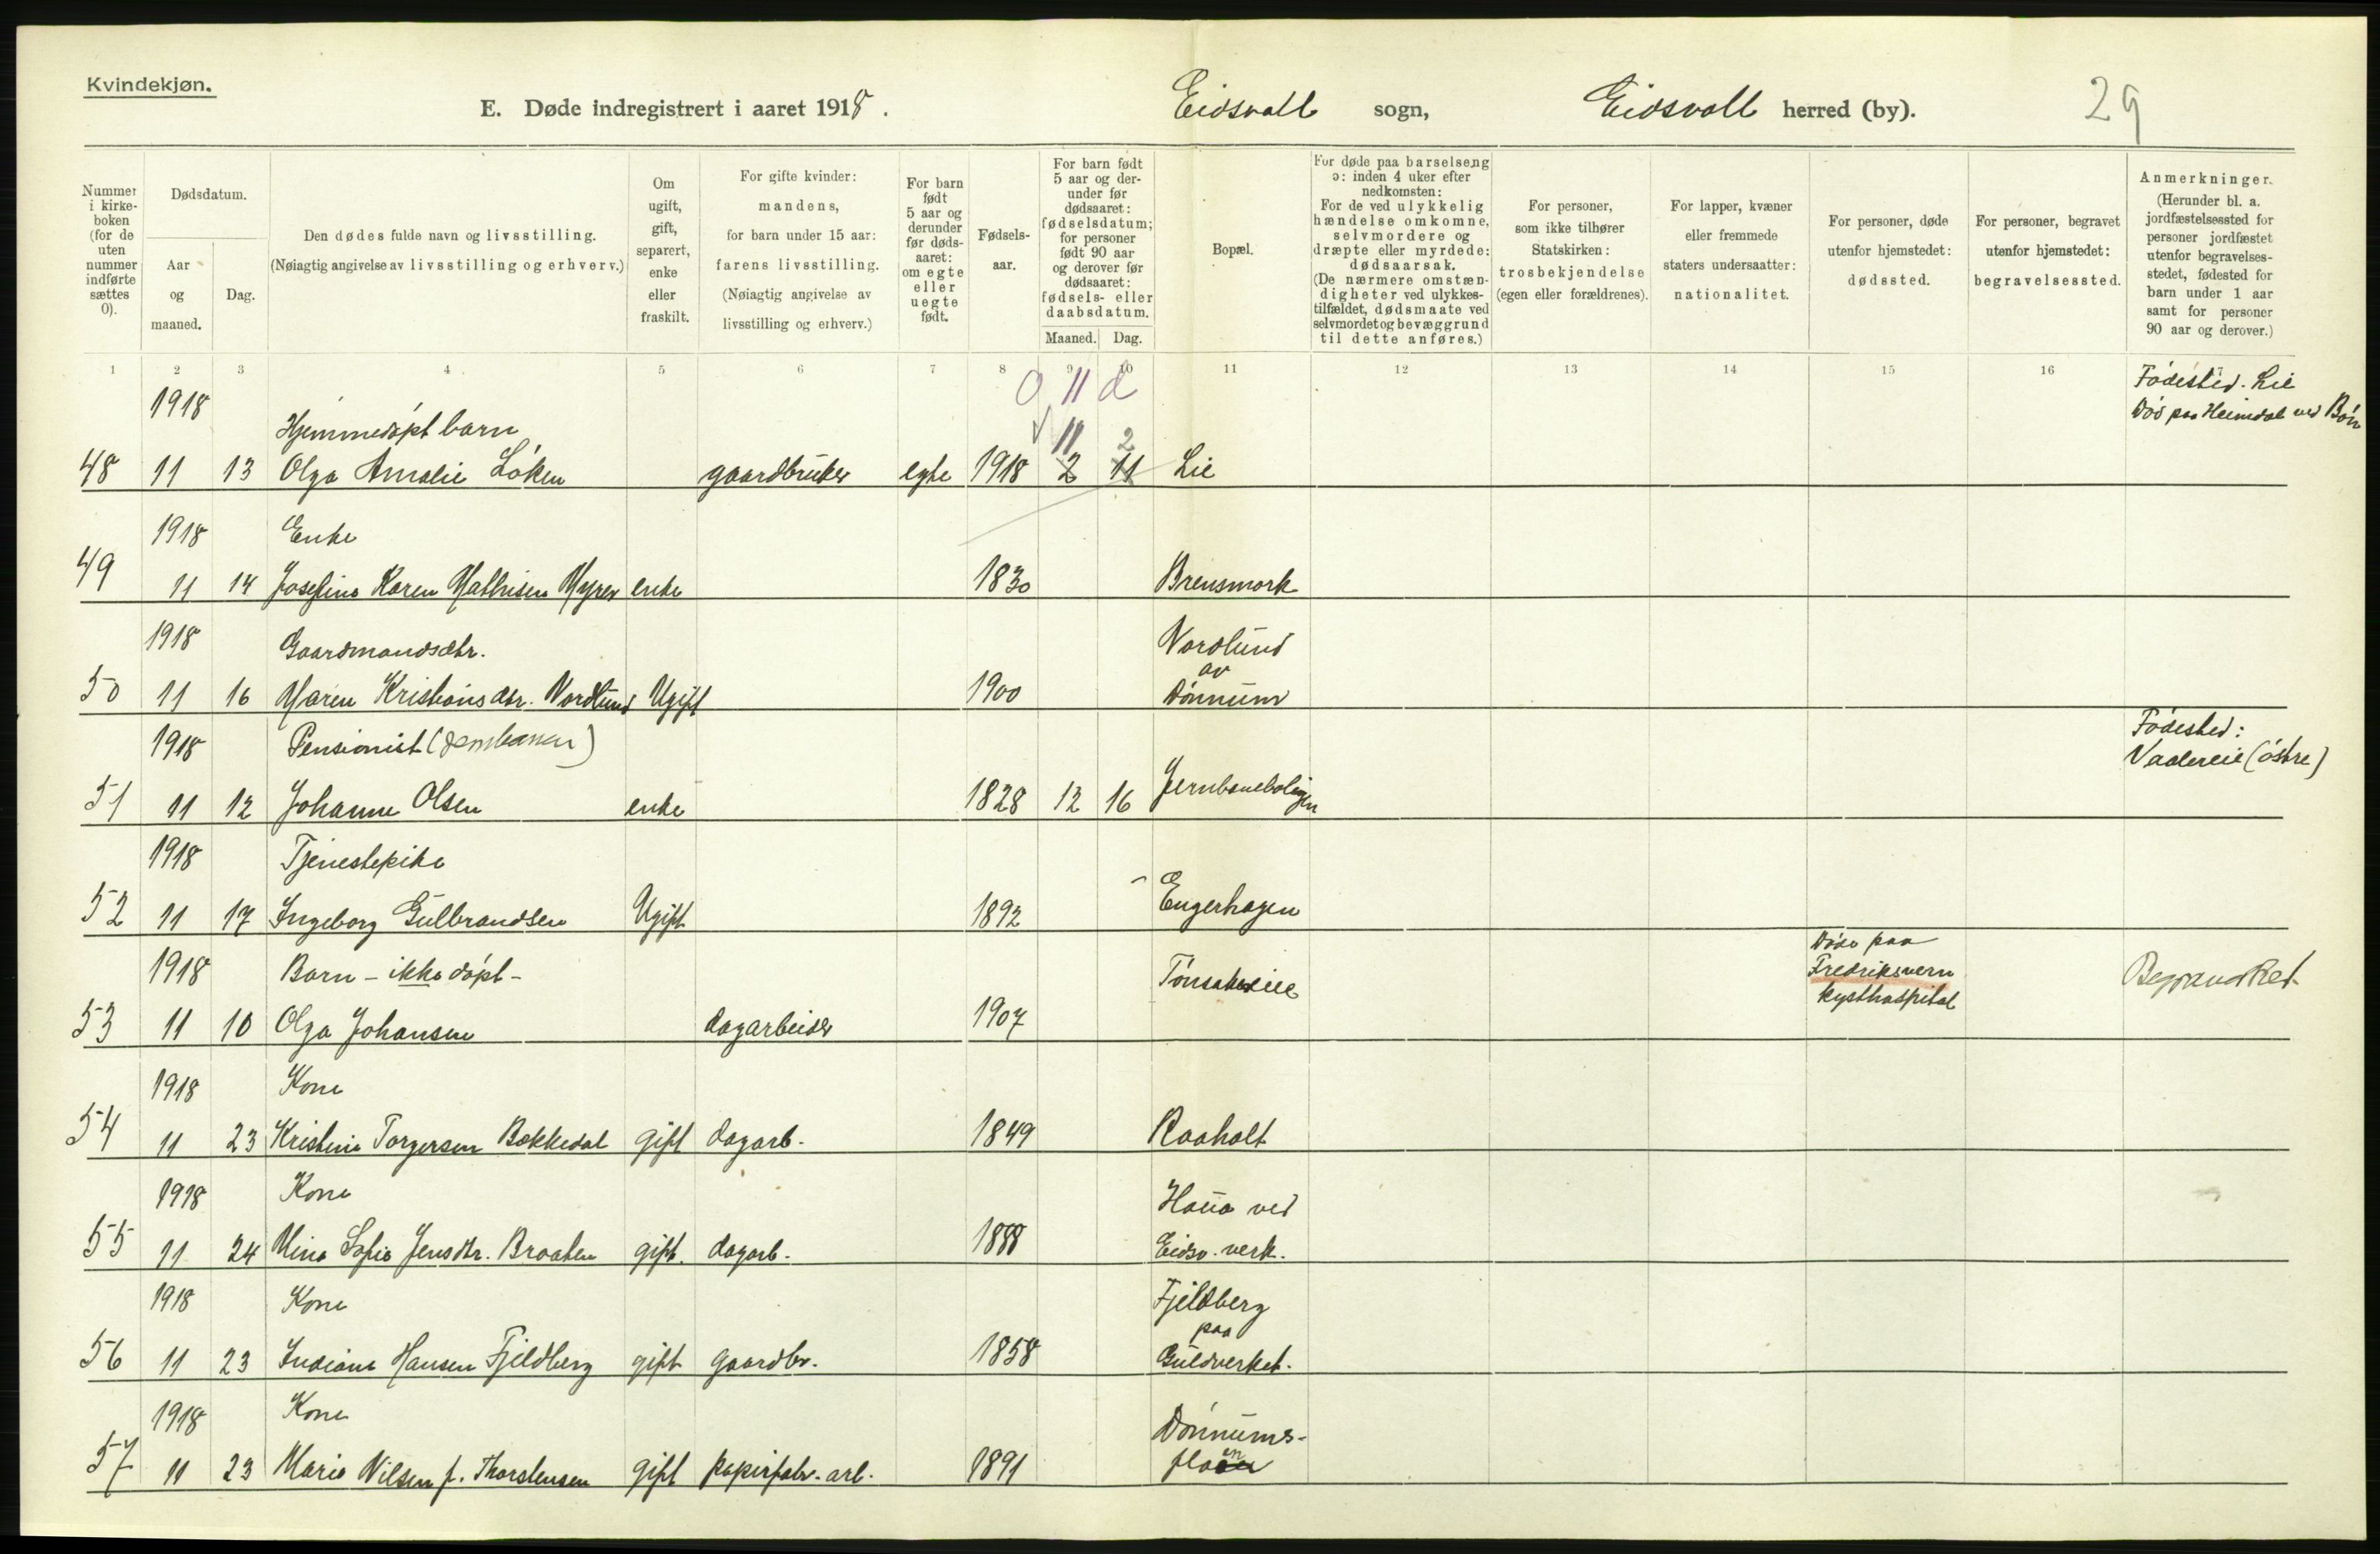 Kvindekjøn.
E. Døde indregistrert i aaret 1918. Eidsvoll sogn, Eidsvoll herred (by). 29
Nummer i kirke-boken (for de uten nummer indførte sættes 0).
Dødsdatum.
Aar og maaned.
Dag.
Den dødes fulde navn og livsstilling.
(Nøiagtig angivelse av livsstilling og erhverv.)
Om ugift, gift, separert, enke eller fraskilt.
For gifte kvinder: mandens, for barn under 15 aar: farens livsstilling. (Nøiagtig angivelse av livsstilling og erhverv.)
For barn født 5 aar og derunder før døds-aaret: om egte eller uegte født.
Fødsels-aar.
For barn født 5 aar og der-under før dødsaaret: fødselsdatum; for personer født 90 aar og derover før dødsaaret: fødsels- eller daabsdatum.
Maaned. Dag.
Bopæl.
For døde paa barselseng ɔ: inden 4 uker efter nedkomsten: For de ved ulykkelig hændelse omkomne, selvmordere og dræpte eller myrdede: dødsaarsak. (De nærmere omstæn-digheter ved ulykkes-tilfældet, dødsmaate ved selvmordet og bevæggrund til dette anføres.)
For personer, som ikke tilhører Statskirken: trosbekjendelse (egen eller forældrenes).
For lapper, kvæner eller fremmede staters undersaatter: nationalitet.
For personer, døde utenfor hjemstedet: dødssted.
For personer, begravet utenfor hjemstedet: begravelsessted.
Anmerkninger. (Herunder bl. a. jordfæstelsessted for personer jordfæstet utenfor begravelses-stedet, fødested for barn under 1 aar samt for personer 90 aar og derover.)
1 2 3 4 5 6 7 8 9 10 11 12 13 14 15 16
11 d
Fødested. Lie
1918 Død paa Heimdal ved Bøn
Hjemmedøpt barn 11 2
48 11 13 Olga Amalie Løken gaardbruker egte 1918 2 11 Lie
1918 Enke
49 11 14 Josefine Karen Mathisen Myrer enke 1830 Brensmork
1918 Gaardmandsdtr. Nordlund
av
50 11 16 Maren Kristiansdtr. Nordlund Ugift 1900 Dønnum
1918 Pensionist (Jernbanen) Fødested:
Vaalereie (østre)
51 11 12 Johanne Olsen enke 1828 12 16 Jernbaneboligen
1918 Tjenestepike
52 11 17 Ingeborg Gulbrandsen Ugift 1892 Engerhagen
1918 Barn - ikke døpt - Tønsakereie Døde paa Fredriksvern kysthospital
53 11 10 Olga Johansen dagarbeider 1907
1918 Kone
54 11 23 Kristine Torgersen Bekkedal gift dagarb. 1849 Raaholt
1918 Kone ved
55 11 24 Mina Sofie Jensdtr. Braaten gift. dagarb. 1888 Eidsv. verk.
1918 Kone Fjeldberg
paa
56 11 23 Indiana Hansen Fjeldberg gift gaardbr. 1858 Guldverket.
1918 Kone Dønnums-
57 11 23 Marie Nilsen f. Thorstensen gift papirfabr. arb. 1891 floen